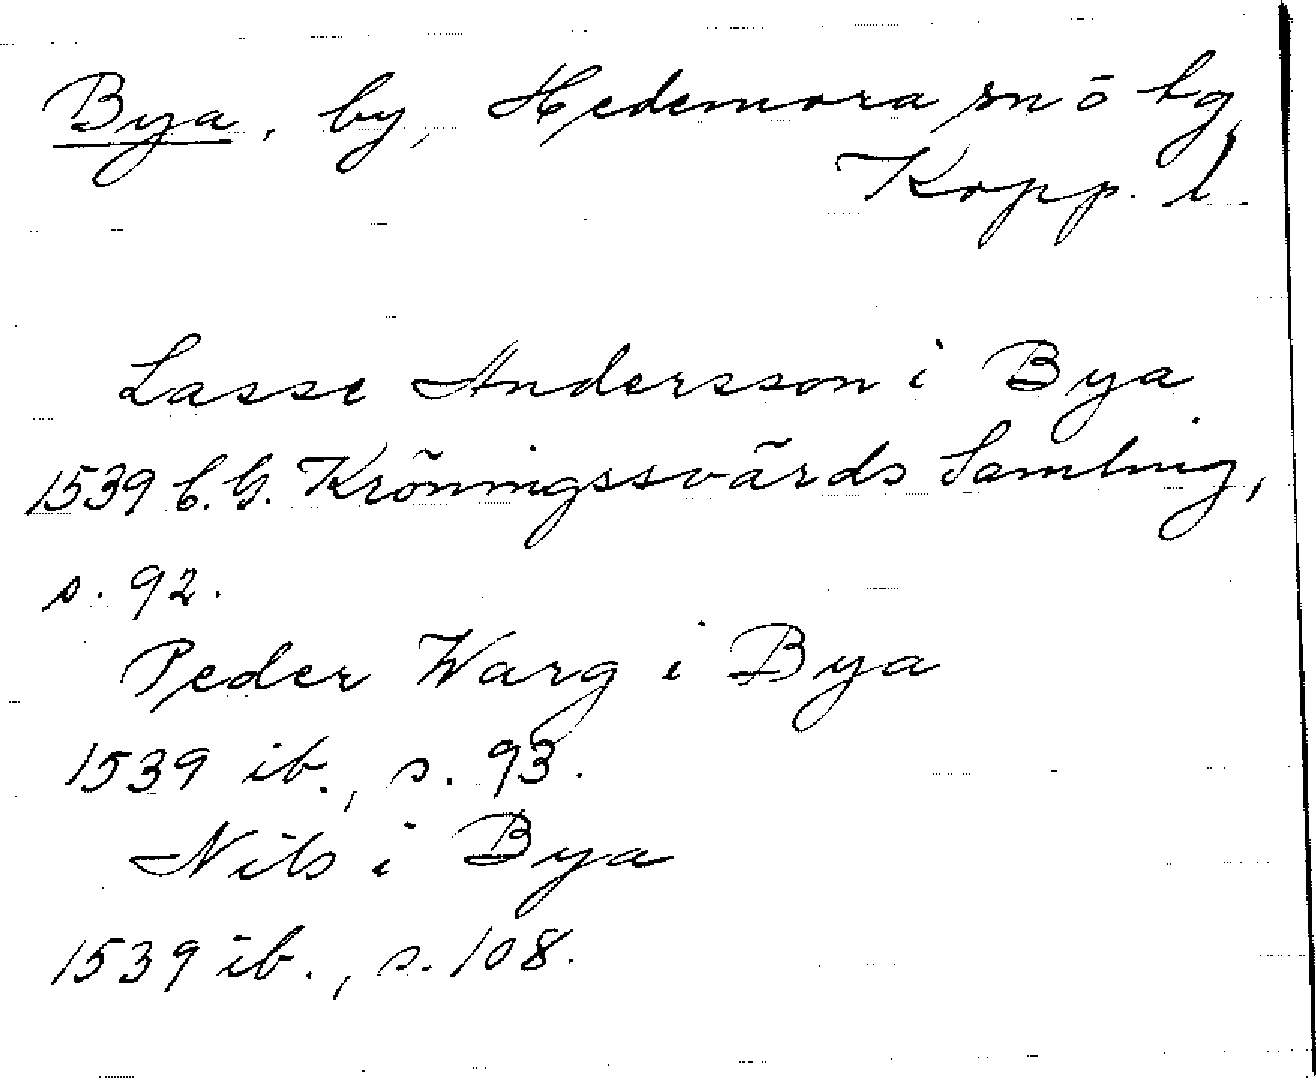 Bya, by, Hedemora sn ō tg,
Kopp. l.
Lasse Andersson i Bya
1539 C.G. Kröningssvärds Samling,
s. 92.
Peder Warg i Bya
1539 ib., s. 93.
Nils i Bya
1539 ib., s. 108.